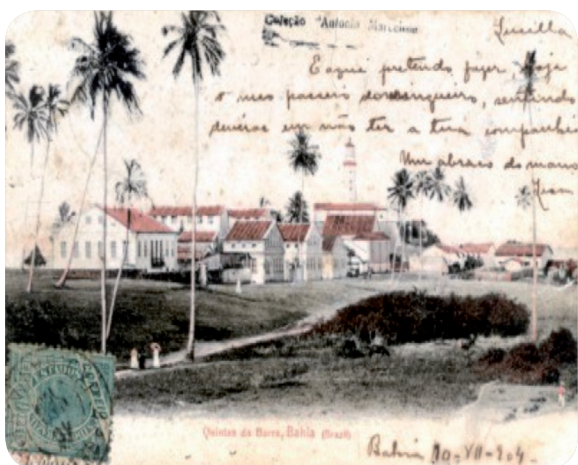 Coleção "Antonio Marcelino
Lucilla
E aqui pretendo fazer, hoje
o meu passeio domingueiro, sentindo
devéras em não ter a tua companhia
Um abraço do mano
Quintas da Barra, Bahia (Brazil)
Bahia 10-VII-904-